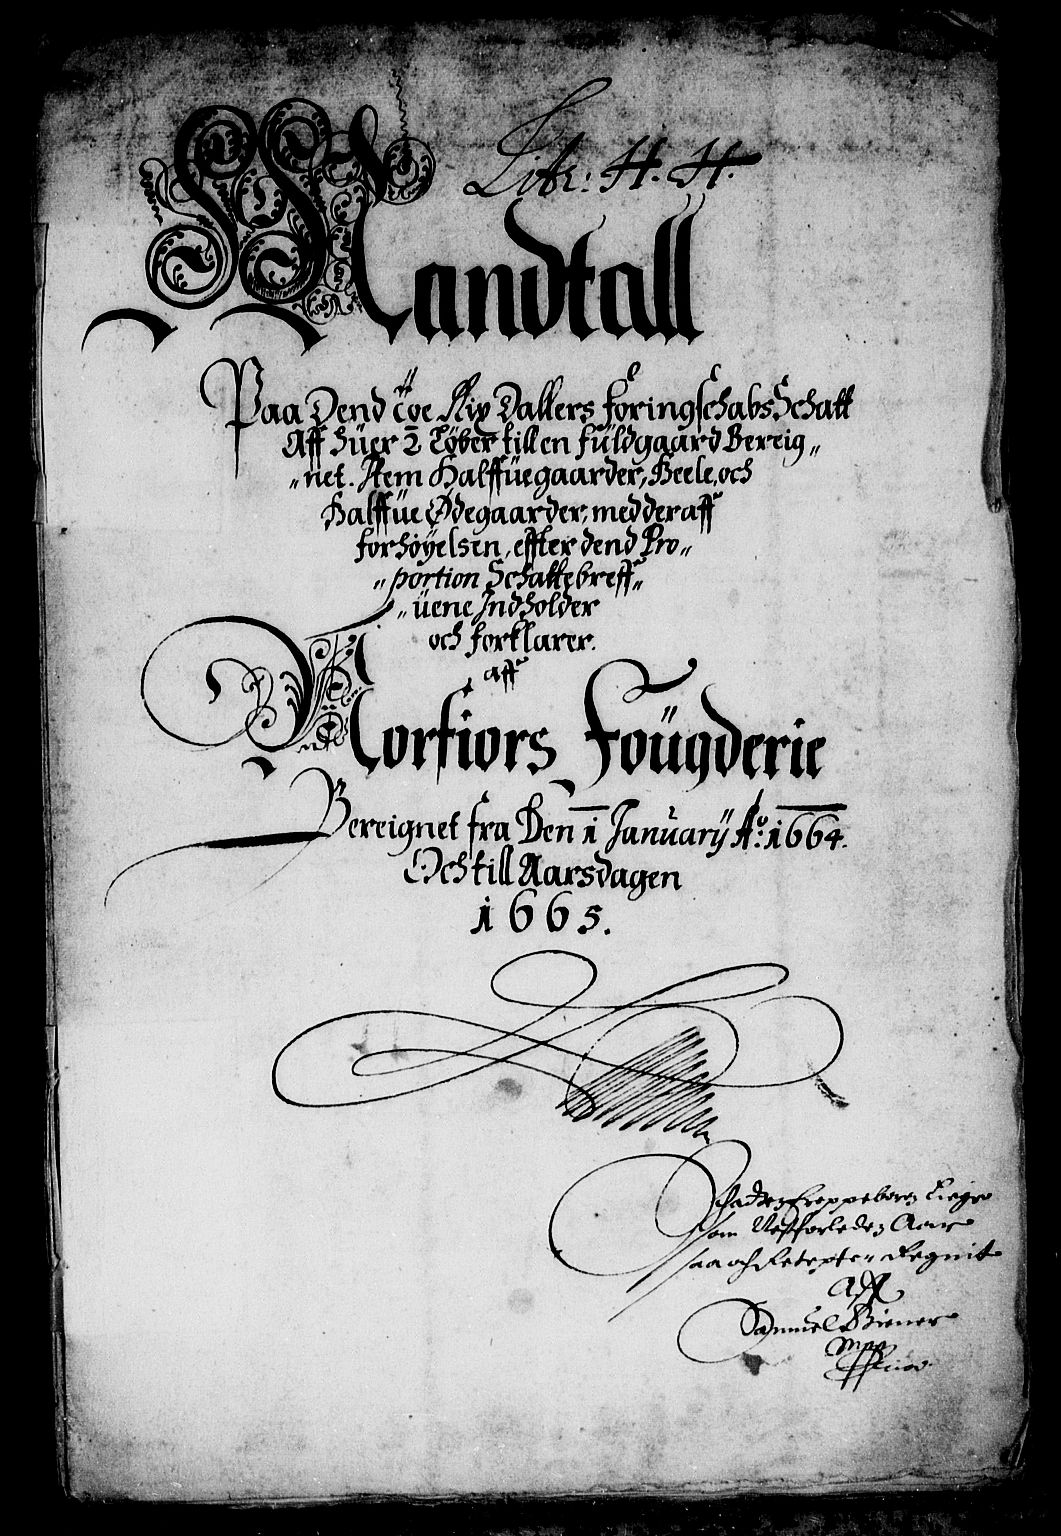 Litr: H. H.
Mandtall
Paa Dend töe Rix Dallers foringschabs Schatt
Aff hüer 2 Tøber till en füldgaard Bereig„
„net. Item Halffüegaarder, Beele, och
Halffüe Ødegaarder, med deraff
forhøyelsen, effter dend Pro„
„portion Schattebreff„
„üene Indholder
och forklarer.
aff
Norfiors Foügderie
Bereignet fra Den 1 Januarÿ Aº: 1664.
Och till Aarsdagen
1665.
som Aar
saa och
Aff
Samuel
mpp